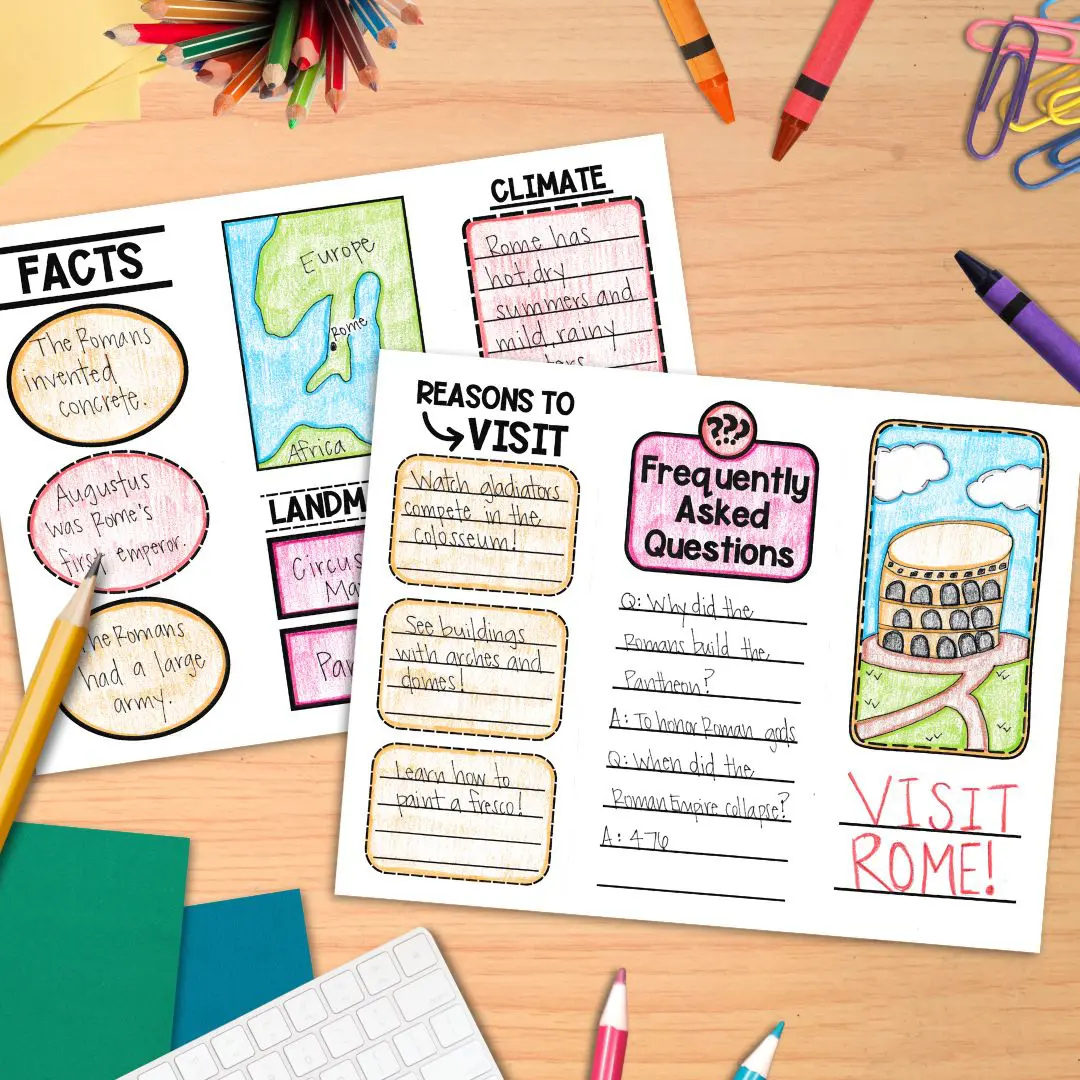 FACTS
The Romans
invented
concrete.
Augustus
was Rome's
first emperor.
The Romans
had a large
army.
Europe
Rome
Africa
LANDM
Circus
Ma
Par
CLIMATE
Rome has
hot, dry
summers and
mild, rainy
REASONS TO
VISIT
Watch gladiators
compete in the
Colosseum!
See buildings
with arches and
domes!
Learn how to
paint a fresco!
???
Frequently
Asked
Questions
Q: Why did the
Romans build the
Pantheon?
A: To honor Roman gods
Q: When did the
Roman Empire collapse?
A: 476
VISIT
ROME!